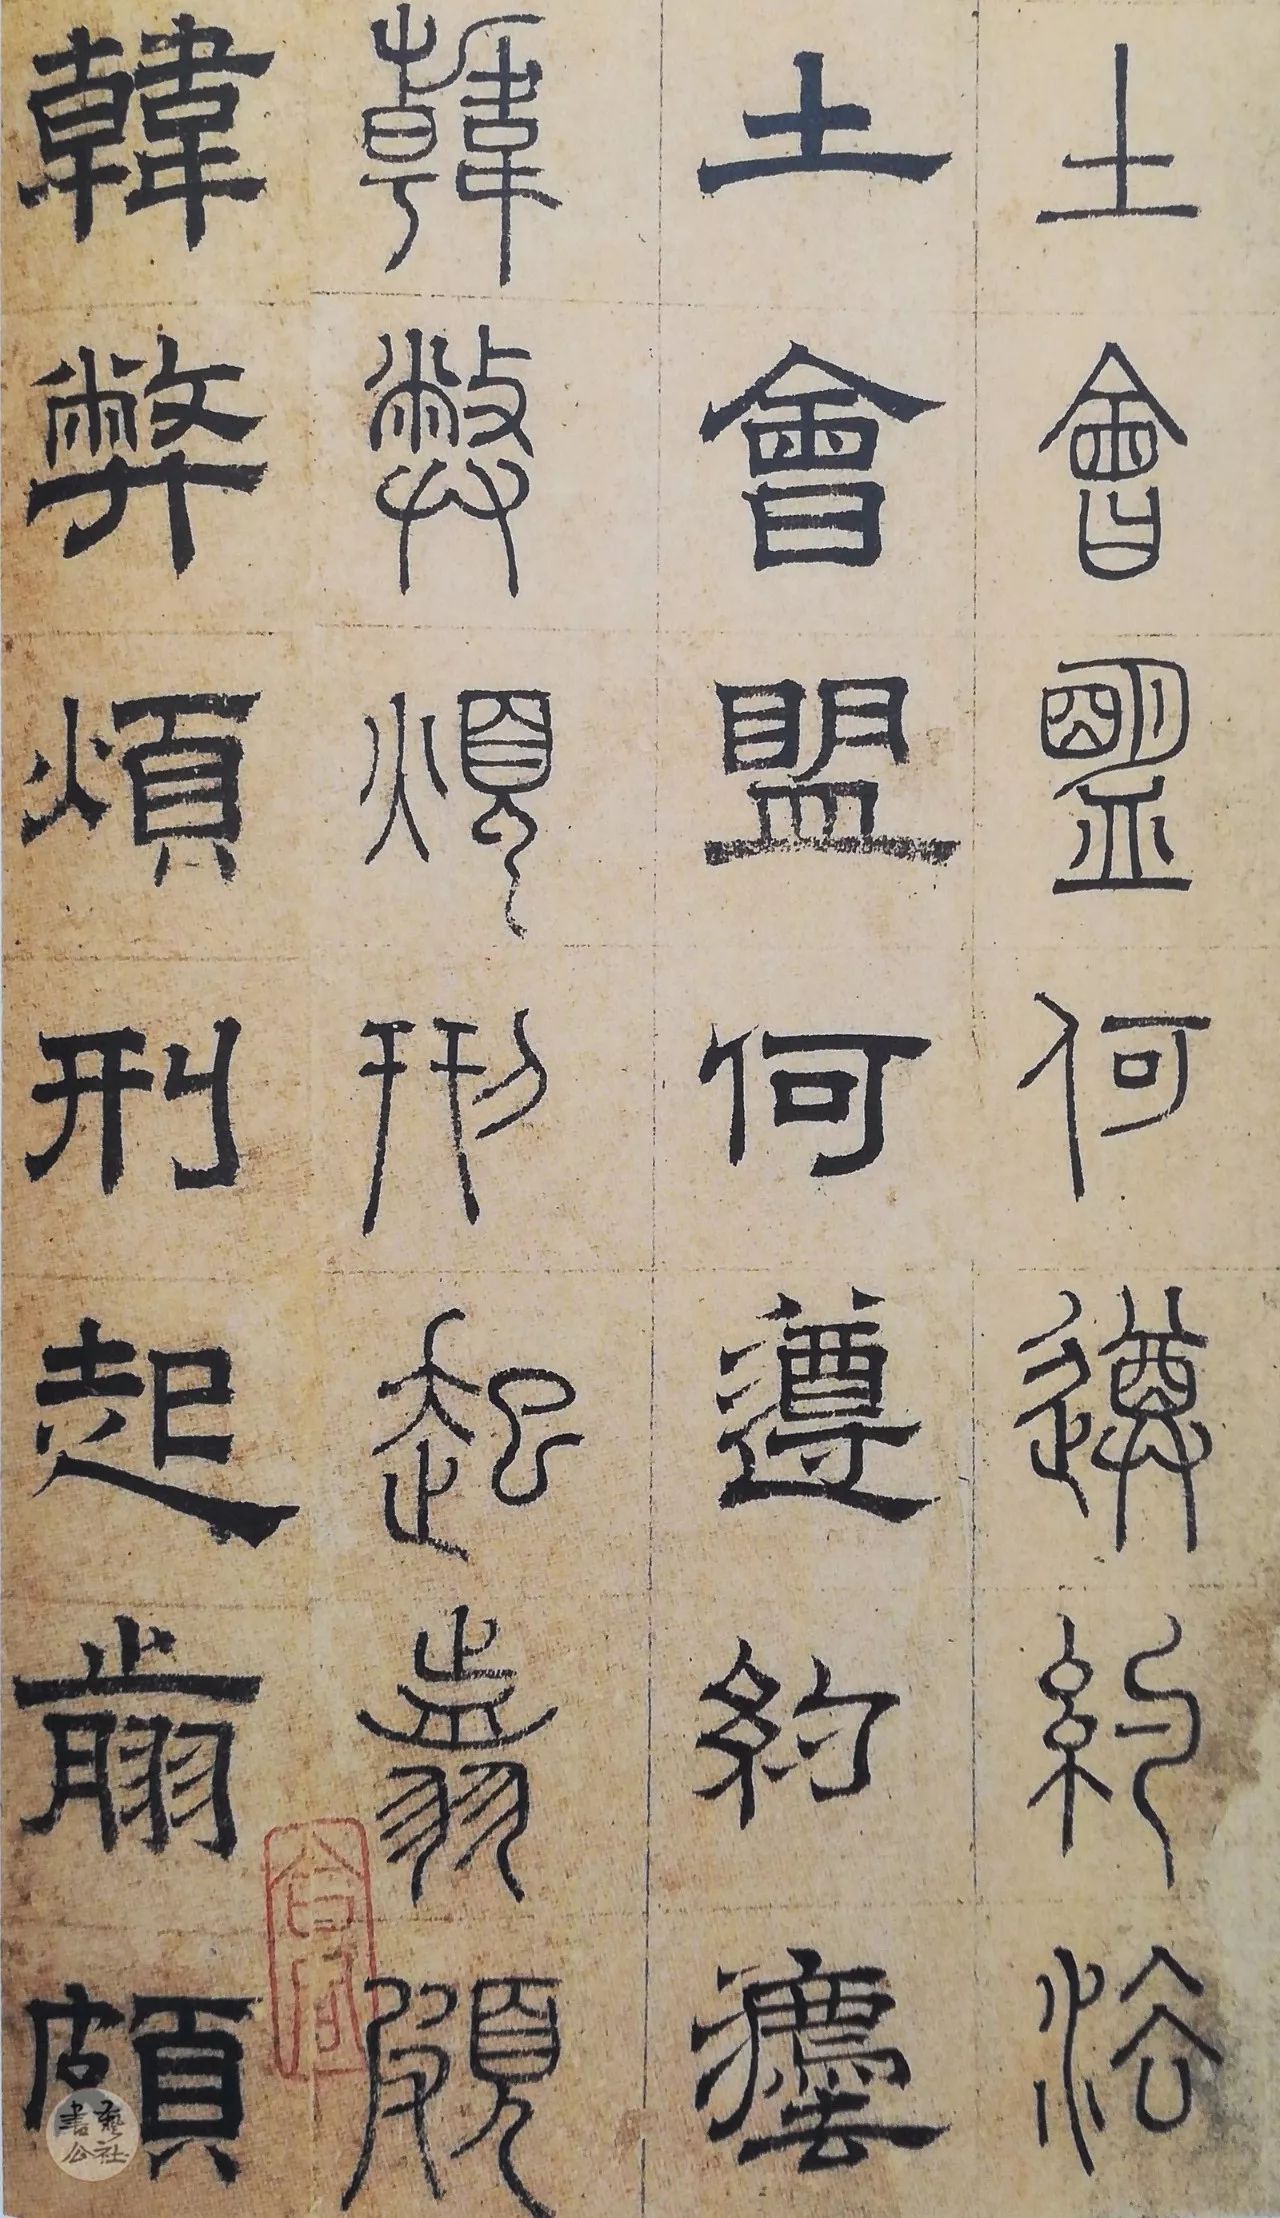 土會盟何遵約法
土會盟何遵約灋
韓弊煩刑起翦頗
韓弊煩刑起翦頗
書藝公社